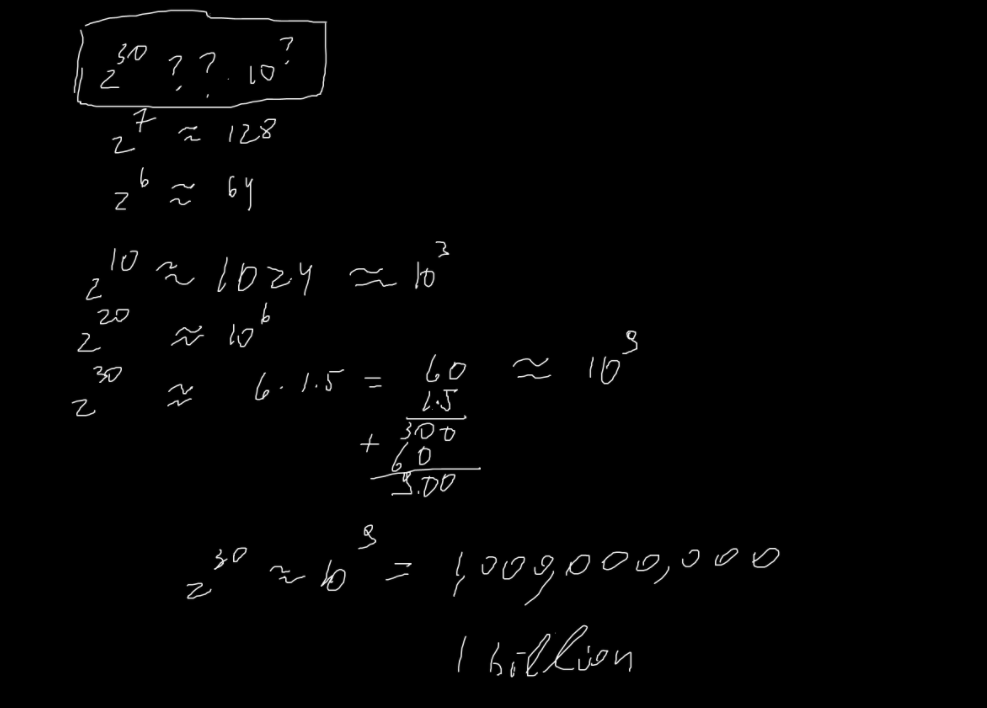 2^30 ? ? . 10^?
2^7 ≈ 128
2^6 ≈ 64
2^10 ≈ 1024 ≈ 10^3
2^20 ≈ 10^6
2^30 ≈ 6 · 1.5 = 60 ≈ 10^9
1.5
300
+ 60
9.00
2^30 ≈ 10^9 = 1,000,000,000
1 billion